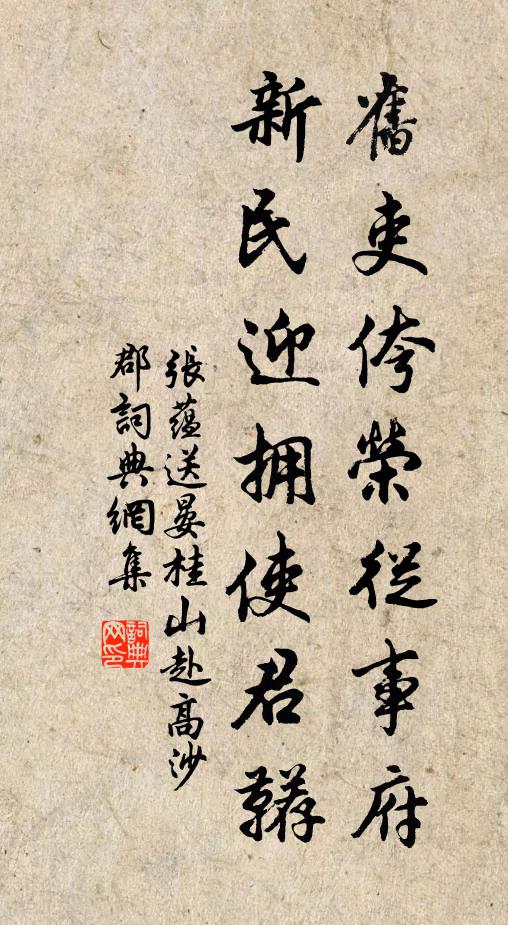 舊吏侉榮從事府
新民迎拥使君韉
張蘊送晏桂山赴高沙
郡詞典網集
詞典
网印